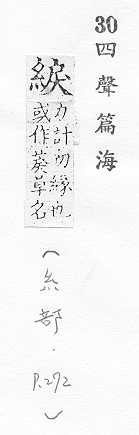 30 四聲篇海
綟
力計切綠也
或作草名
(糸部.P.292)